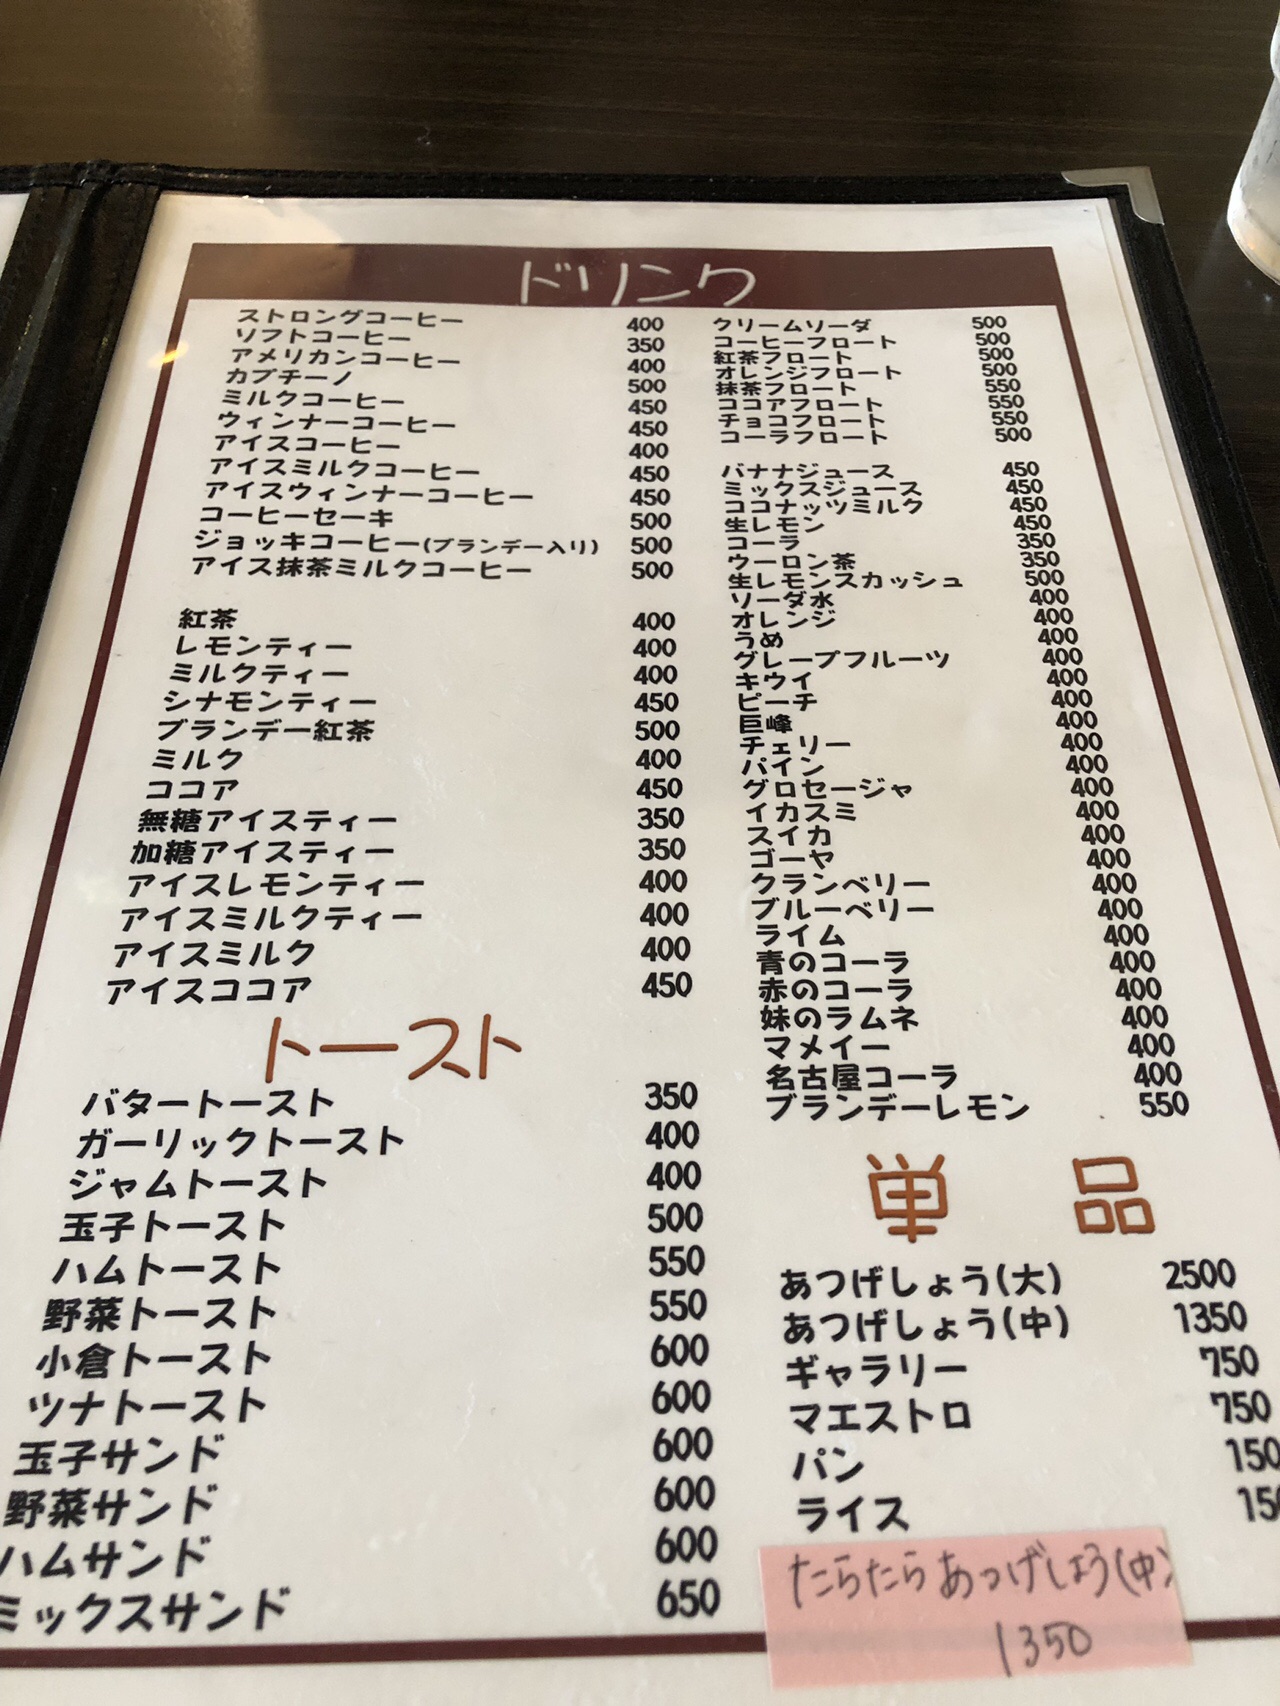 ドリンク
ストロングコーヒー 400
ソフトコーヒー 350
アメリカンコーヒー 400
カプチーノ 500
ミルクコーヒー 450
ウィンナーコーヒー 450
アイスコーヒー 400
アイスミルクコーヒー 450
アイスウィンナーコーヒー 450
コーヒーセーキ 500
ジョッキコーヒー(ブランデー入り) 500
アイス抹茶ミルクコーヒー 500
紅茶 400
レモンティー 400
ミルクティー 400
シナモンティー 450
ブランデー紅茶 500
ミルク 400
ココア 450
無糖アイスティー 350
加糖アイスティー 350
アイスレモンティー 400
アイスミルクティー 400
アイスミルク 400
アイスココア 450
トースト
バタートースト 350
ガーリックトースト 400
ジャムトースト 400
玉子トースト 500
ハムトースト 550
野菜トースト 550
小倉トースト 600
ツナトースト 600
玉子サンド 600
野菜サンド 600
ハムサンド 600
ミックスサンド 650
クリームソーダ 500
コーヒーフロート 500
紅茶フロート 500
オレンジフロート 500
抹茶フロート 550
ココアフロート 550
チョコフロート 550
コーラフロート 500
バナナジュース 450
ミックスジュース 450
ココナッツミルク 450
生レモン 450
コーラ 350
ウーロン茶 350
生レモンスカッシュ 500
ソーダ水 400
オレンジ 400
うめ 400
グレープフルーツ 400
キウイ 400
ピーチ 400
巨峰 400
チェリー 400
パイン 400
グロセージャ 400
イカスミ 400
スイカ 400
ゴーヤ 400
クランベリー 400
ブルーベリー 400
ライム 400
青のコーラ 400
赤のコーラ 400
妹のラムネ 400
マメイー 400
名古屋コーラ 400
ブランデーレモン 550
単品
あつげしょう(大) 2500
あつげしょう(中) 1350
ギャラリー 750
マエストロ 750
パン 150
ライス 150
たらたらあつげしょう(中)
1350